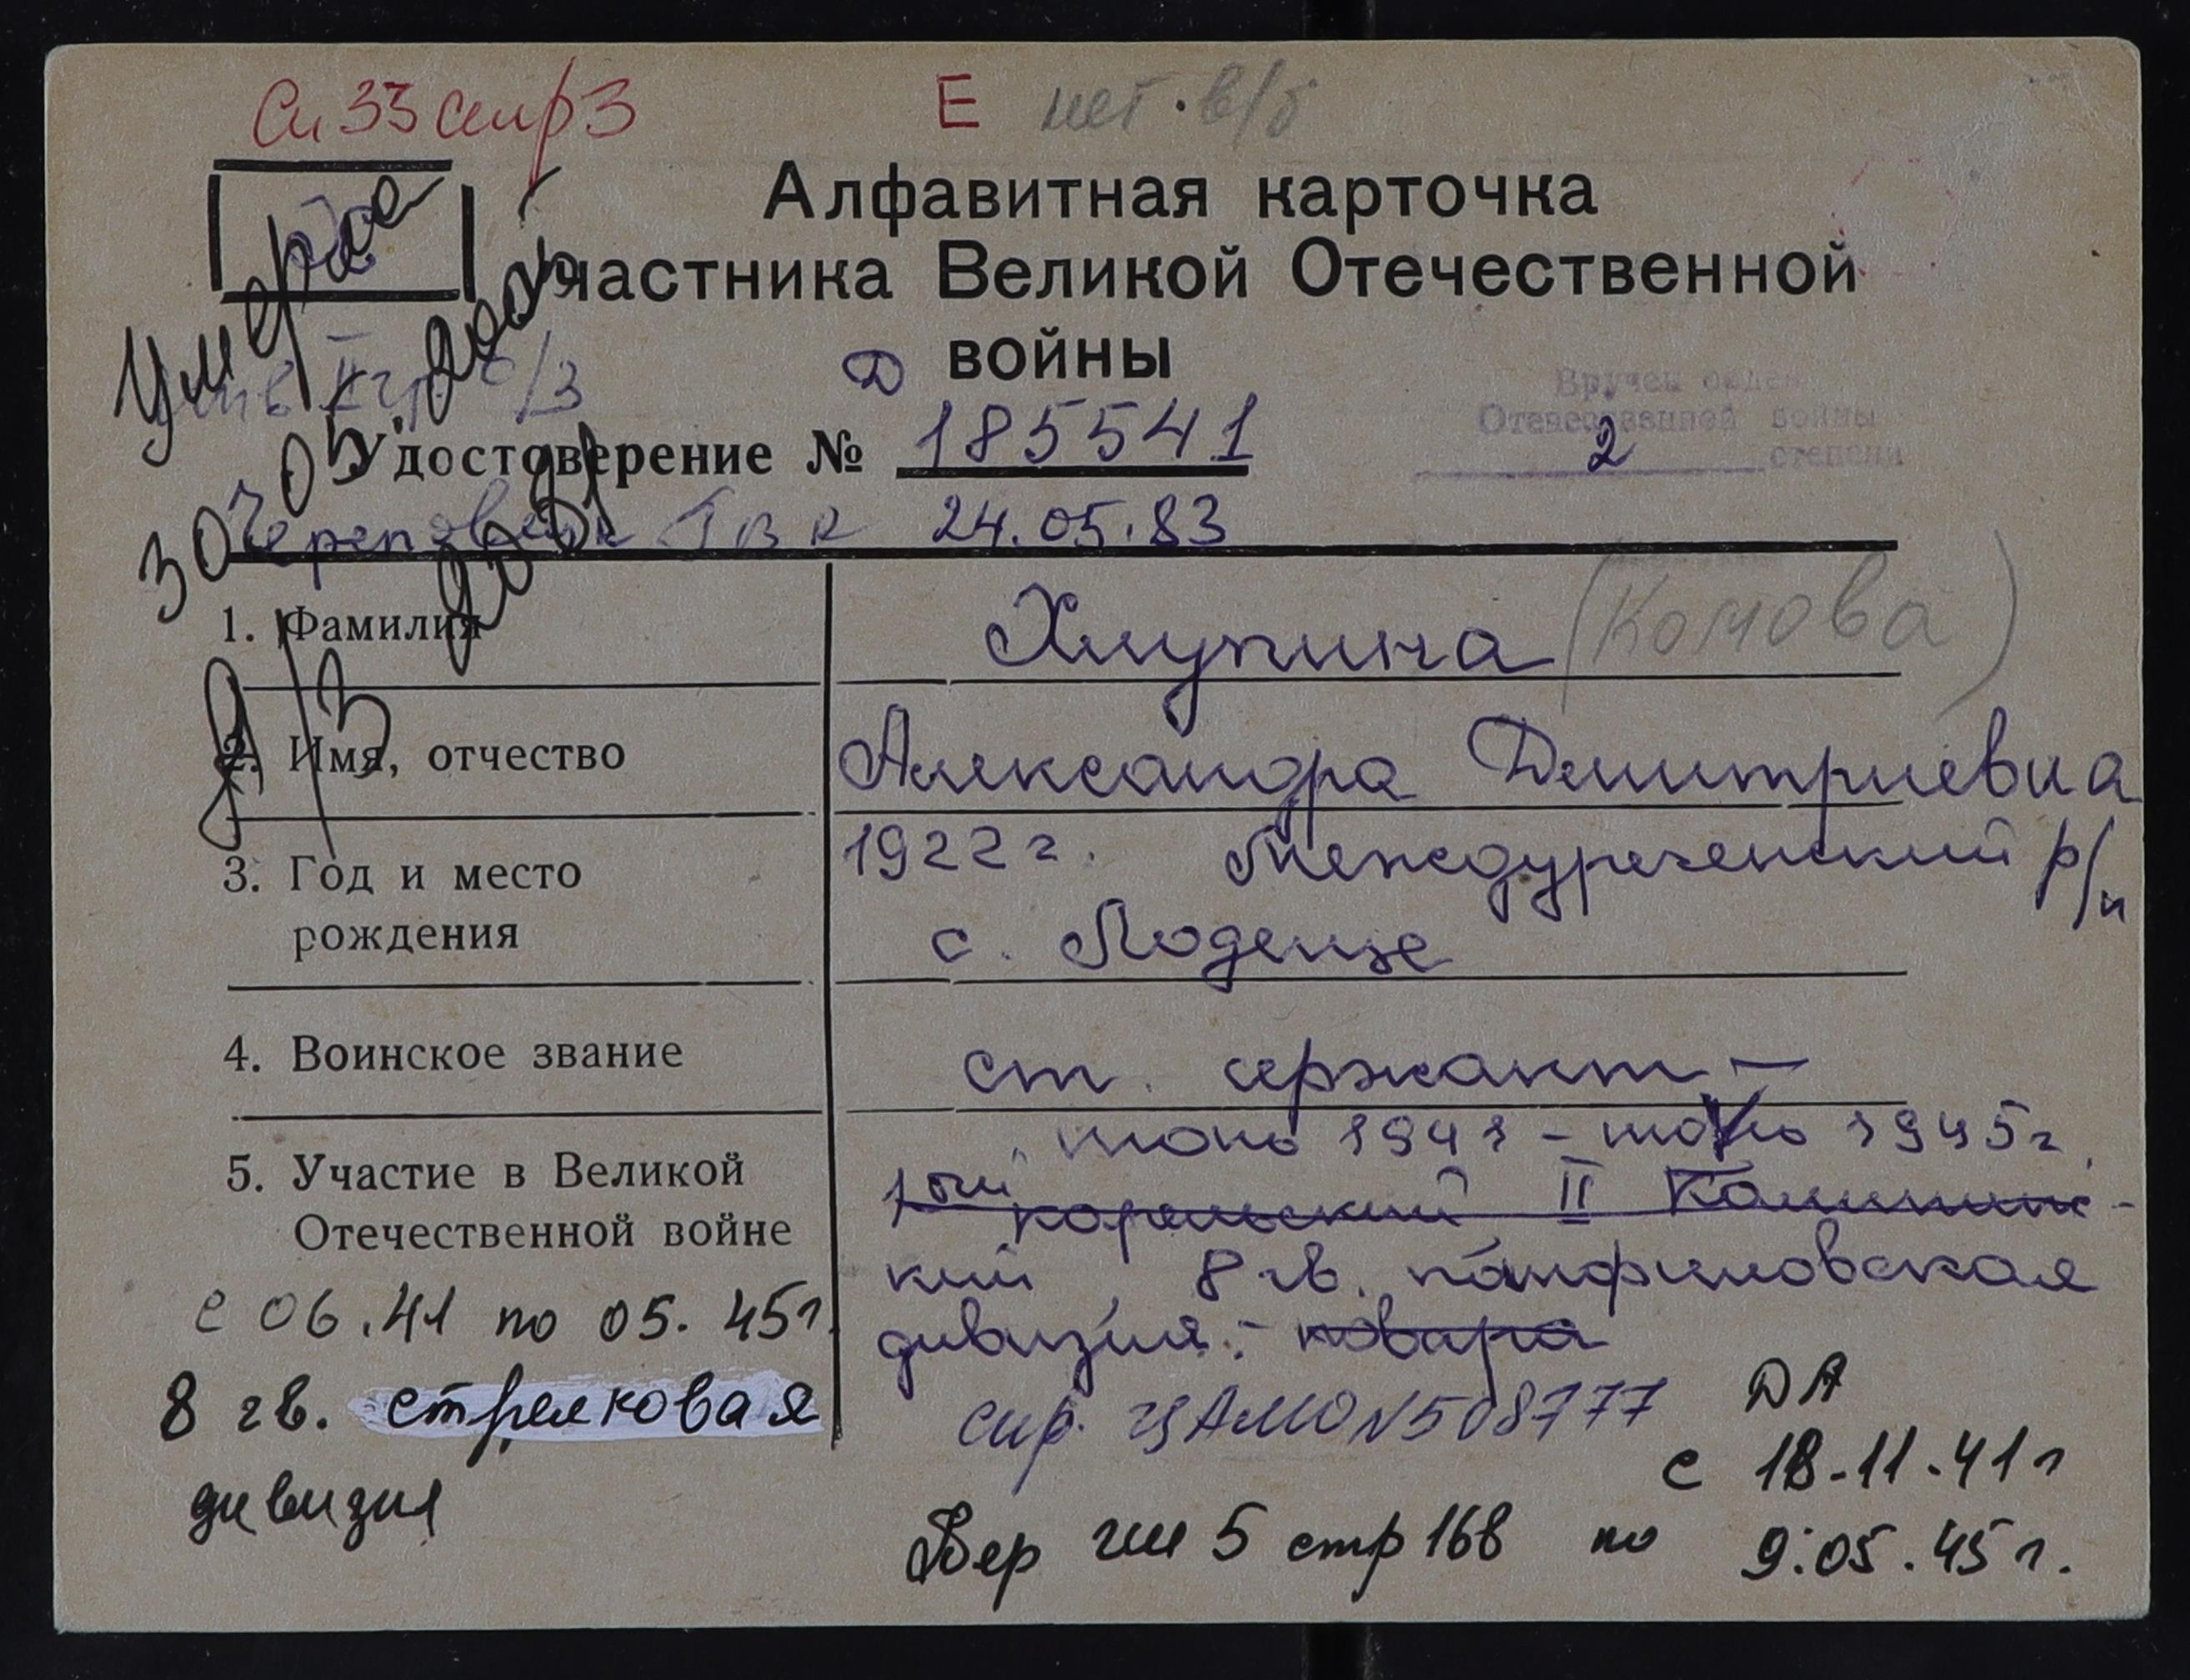 Сп 33 стр 3
Е нет в/б
Алфавитная карточка
участника Великой Отечественной
войны
Умерла
30.05.2001
д/з
инв II гр о/з
Д
Вручен орден
Отечественной войны
2 степени
Удостоверение № 185541
Череповецк ГВК 24.05.83
1. Фамилия
Хлупина (Комова)
2. Имя, отчество
Александра Дмитриевна
3. Год и место
рождения
1922 г. Междуреченский р/н
с.
4. Воинское звание
ст. сержант –
5. Участие в Великой
Отечественной войне
июнь 1941 – июль 1945 г.
1ый карельский II Калинин-
кий, 8 гв. панфиловская
дивизия. – повара
с 06.41 по 05.45 г.
8 гв. стрелковая
дивизия
спр. ЦАМО N 508777
ДА
с 18.11.41 г
по 9.05.45 г.
5 стр 168